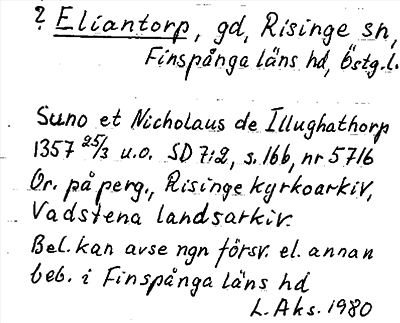 ? Eliantorp, gd, Risinge sn,
Finspånga läns hd, Östg.l.
Suno et Nicholaus de Illughathorp
1357 25/3 u.o. SD 7:2, s.166, nr 5716
Or. på perg., Risinge kyrkoarkiv,
Vadstena landsarkiv.
Bel. kan avse ngn försv. el. annan
beb. i Finspånga läns hd
L. Aks. 1980